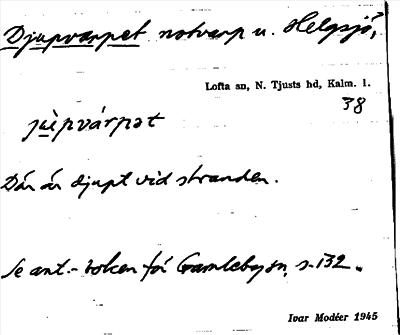 Djupvarpet notvarp u. Helgsjö,
Lofta sn, N. Tjusts hd, Kalm. l.
38
jùpvárpət
Där är djupt vid stranden.
Se ant.-boken för Gamleby sn, s. 132.
Ivar Modéer 1945